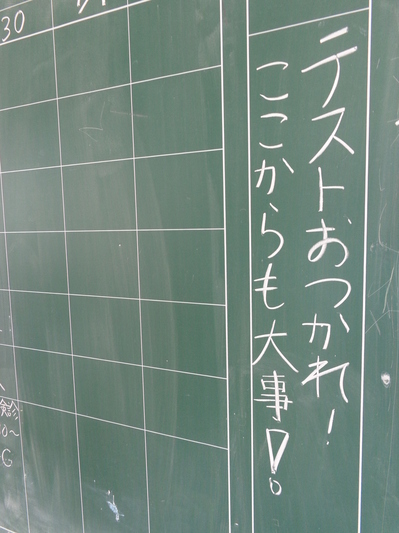 テストおつかれ!
ここからも大事!。
30
診
0〜
G